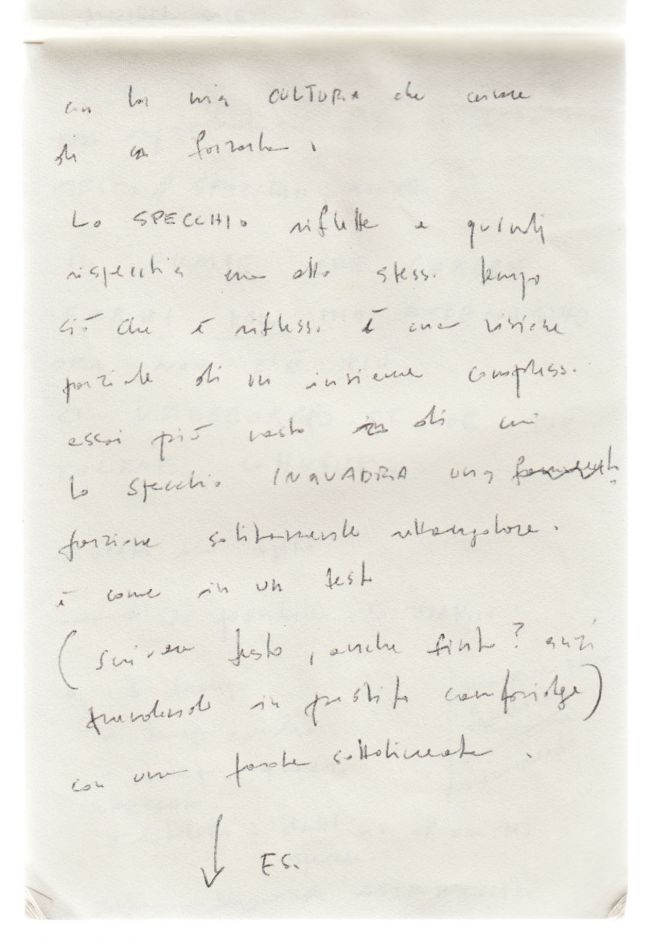 con la mia CULTURA che cercare
di forzarla.
Lo SPECCHIO riflette e quindi
rispecchia ma allo stesso tempo
ciò che è riflesso è una visione
parziale di un insieme complesso.
assai più vasto di cui
lo specchio INQUADRA una
porzione solitamente rettangolare.
è come in un testo
(scrivere testo, anche finto? anzi
prendendolo in prestito cambridge)
con una parola sottolineata.
ES.